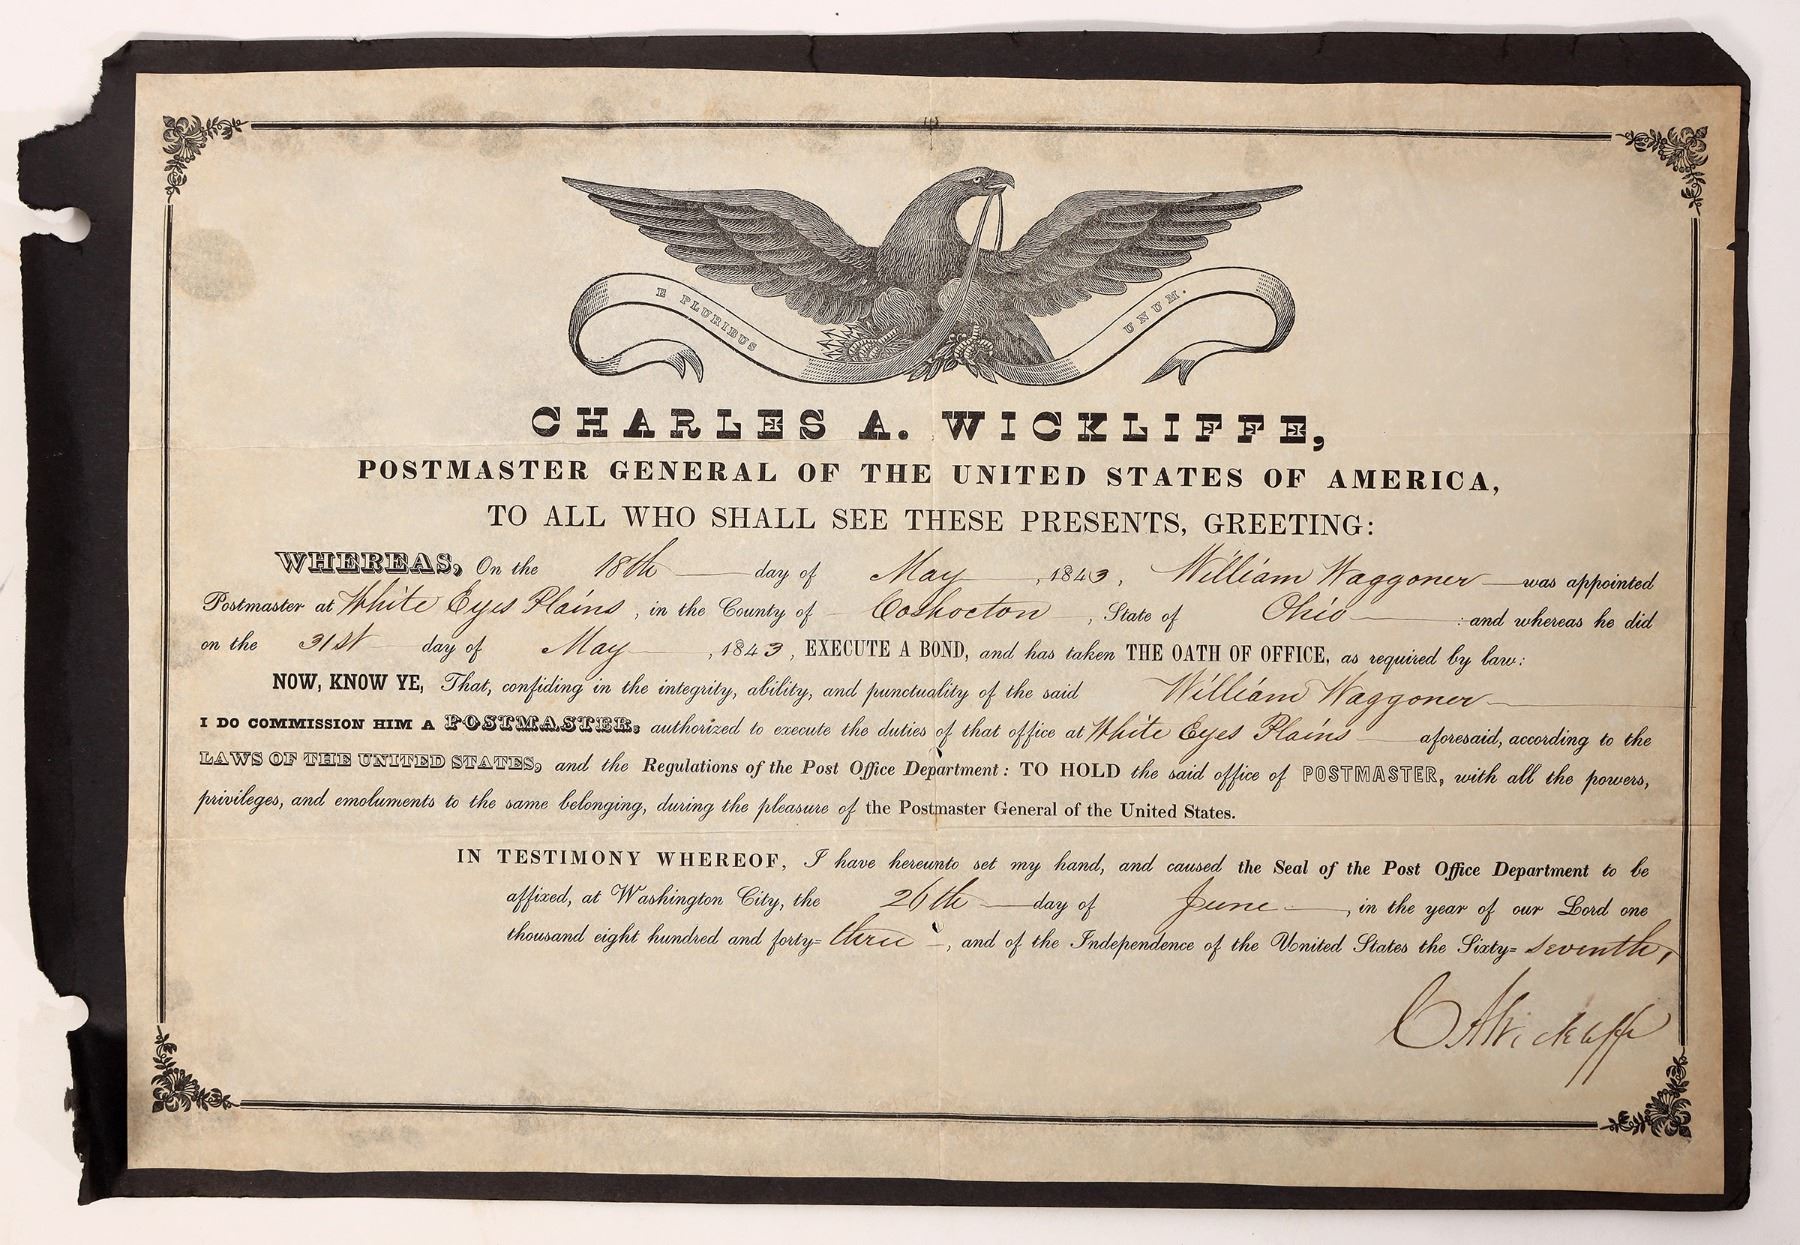 E PLURIBUS UNUM.
CHARLES A. WICKLIFFE,
POSTMASTER GENERAL OF THE UNITED STATES OF AMERICA,
TO ALL WHO SHALL SEE THESE PRESENTS, GREETING:
WHEREAS, On the 18th day of May, 1843, William Waggoner was appointed
Postmaster at White Eyes Plains, in the County of Coshocton, State of Ohio : and whereas he did
on the 31st day of May, 1843, EXECUTE A BOND, and has taken THE OATH OF OFFICE, as required by law:
NOW, KNOW YE, That, confiding in the integrity, ability, and punctuality of the said William Waggoner
I DO COMMISSION HIM A POSTMASTER, authorized to execute the duties of that office at White Eyes Plains aforesaid, according to the
LAWS OF THE UNITED STATES, and the Regulations of the Post Office Department: TO HOLD the said office of POSTMASTER, with all the powers,
privileges, and emoluments to the same belonging, during the pleasure of the Postmaster General of the United States.
IN TESTIMONY WHEREOF, I have hereunto set my hand, and caused the Seal of the Post Office Department to be
affixed, at Washington City, the 26th day of June, in the year of our Lord one
thousand eight hundred and forty=three, and of the Independence of the United States the Sixty=seventh,
C A Wickliffe